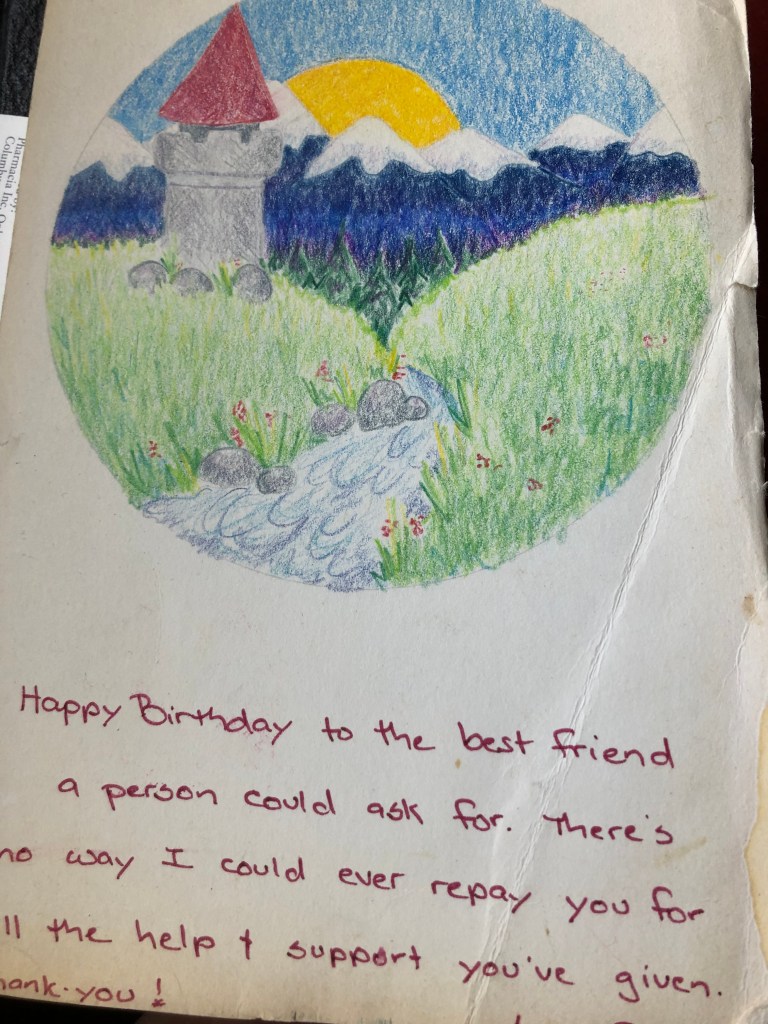 Pharmacia Inc.
Happy Birthday to the best friend
a person could ask for. There's
no way I could ever repay you for
ll the help + support you've given.
hank-you!